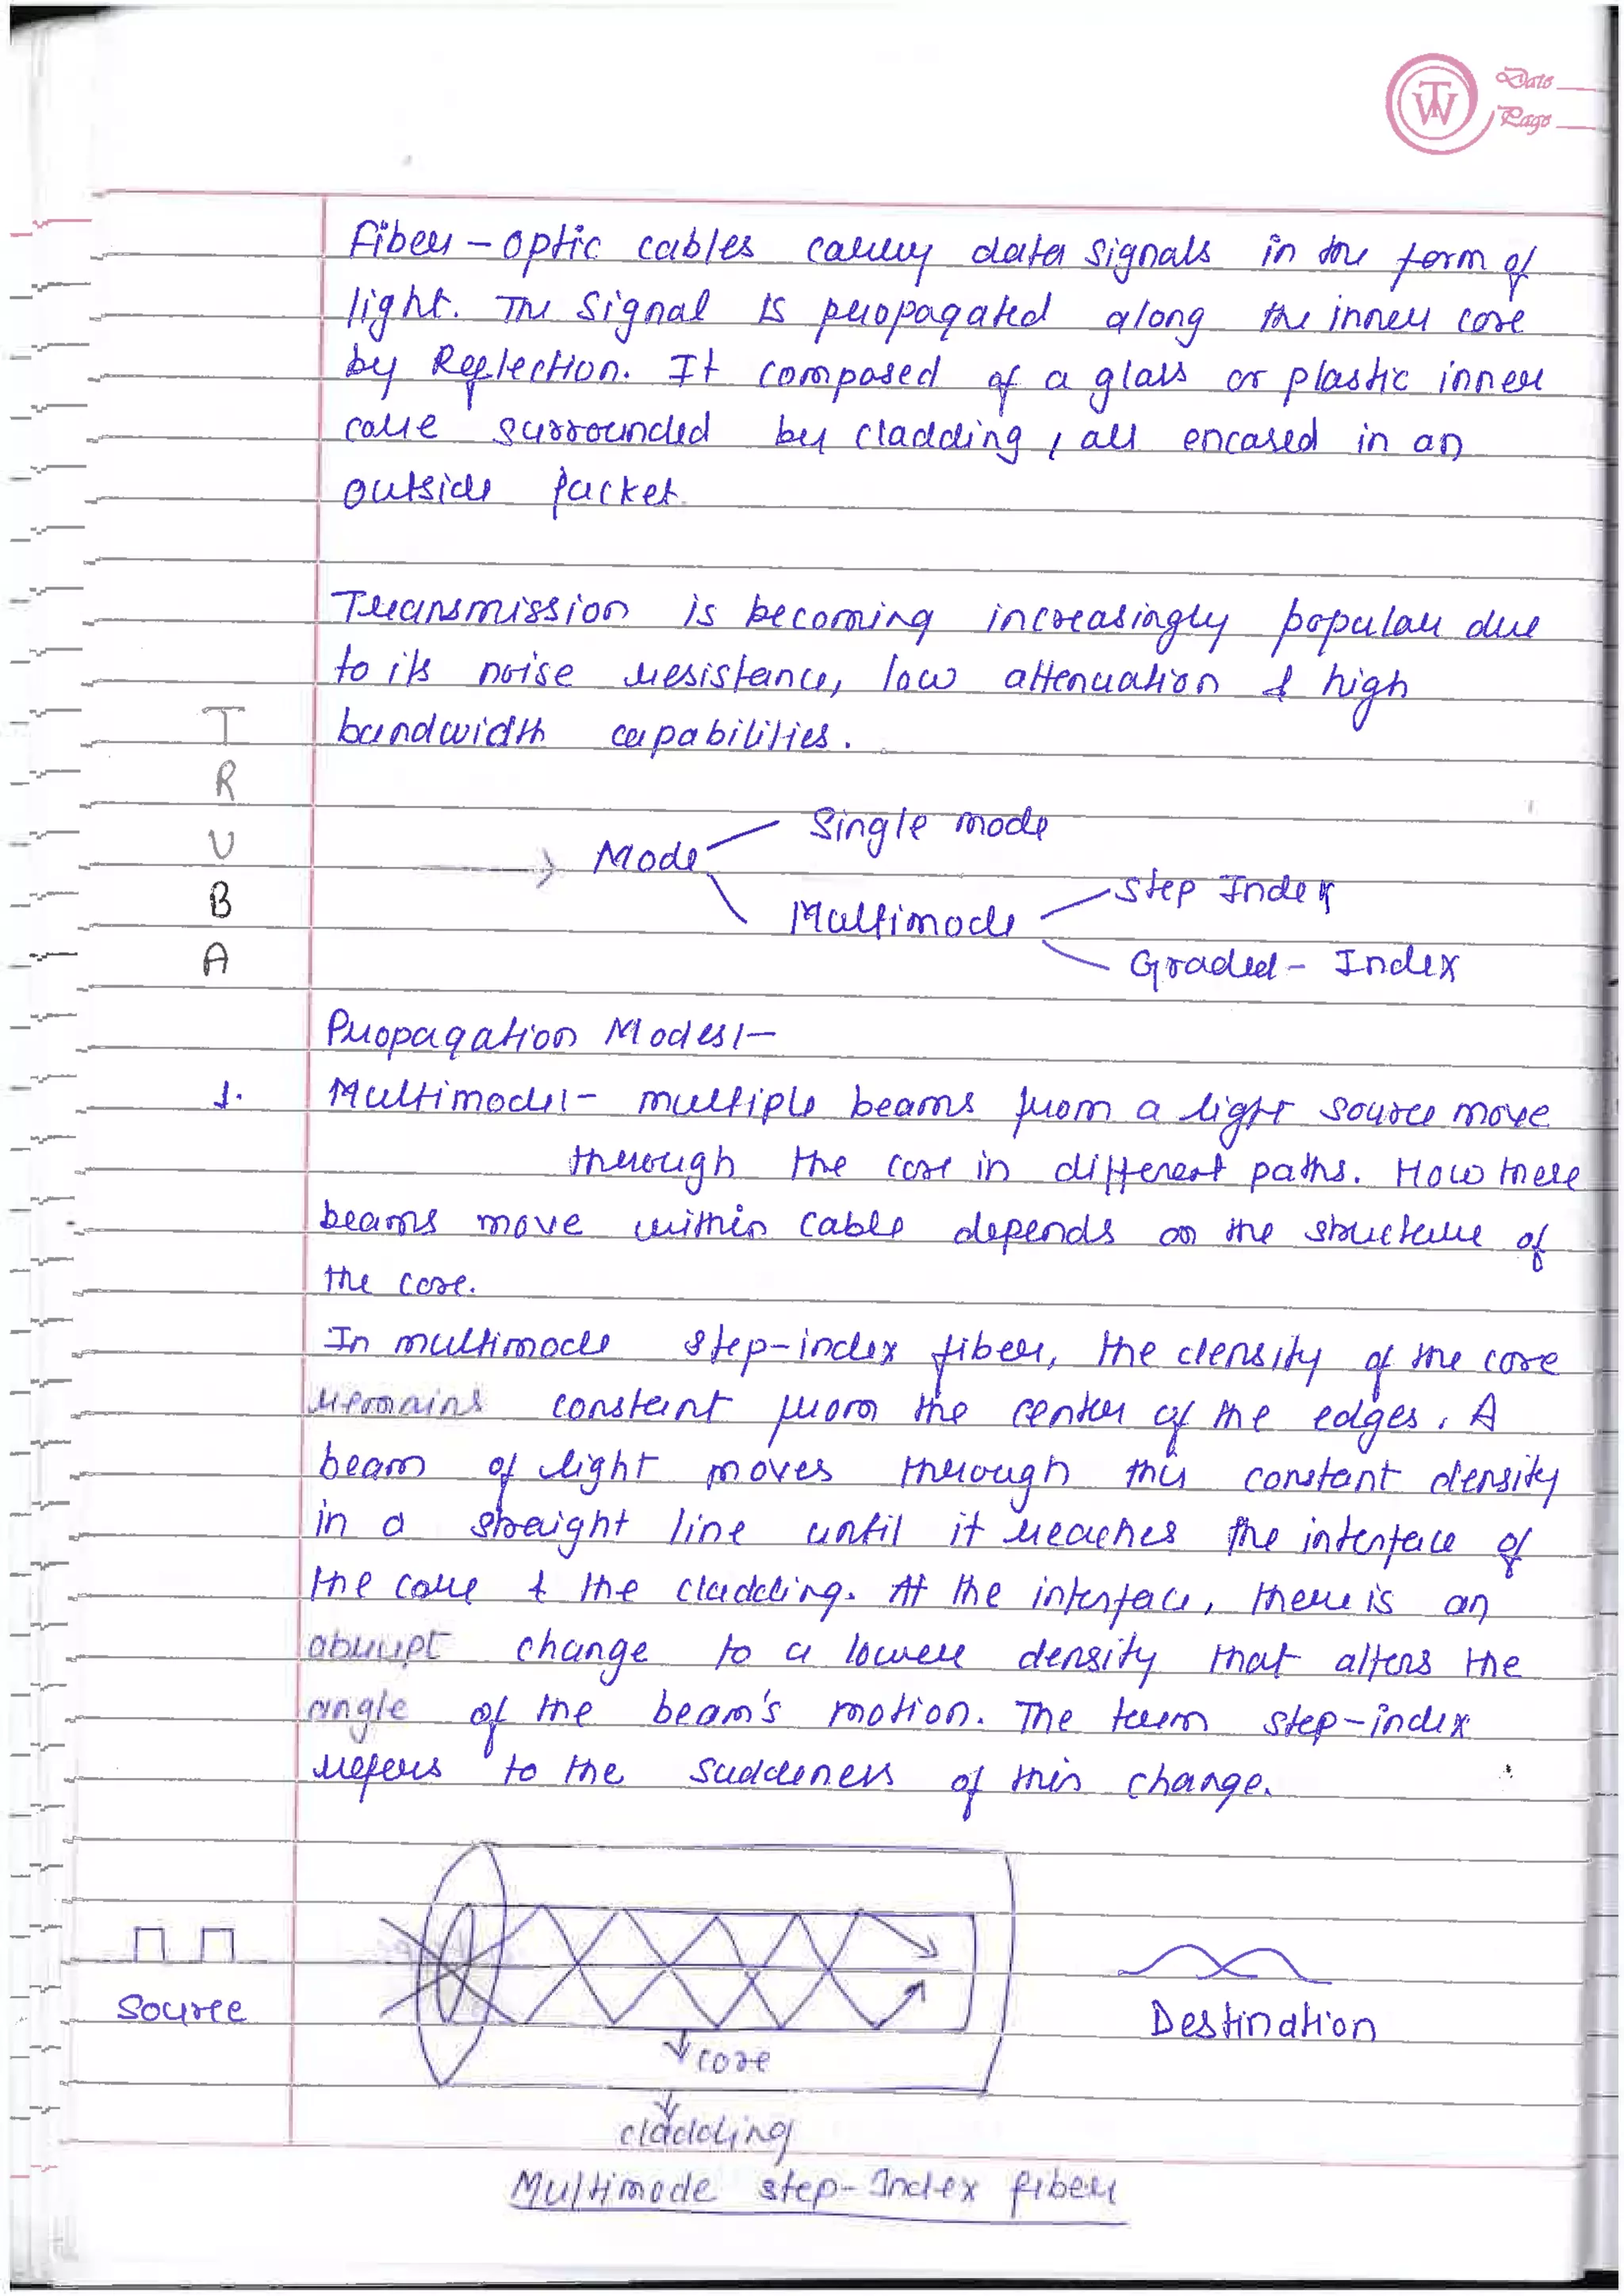 TW Date
Page
Fiber - optic cables carry data signals in the form of
light. The signal is propagated along the inner core
by Reflection. It composed of a glass or plastic inner
core surrounded by cladding, all encased in an
outside jacket.
Transmission is becoming increasingly popular due
to its noise resistance, low attenuation & high
bandwidth capabilities.
T
R
U
B
A
→ Mode
Single mode
Multimode
Step Index
Graded - Index
Propagation Modes:-
1. Multimode:- multiple beams from a light source move
through the core in different paths. How these
beams move within cable depends on the structure of
the core.
In multimode step-index fiber, the density of the core
remains constant from the center of the edges. A
beam of light moves through this constant density
in a straight line until it reaches the interface of
the core & the cladding. At the interface, there is an
abrupt change to a lower density that alters the
angle of the beam's motion. The term step-index
refers to the suddenness of this change.
Source
Destination
core
cladding
Multimode step-Index fiber